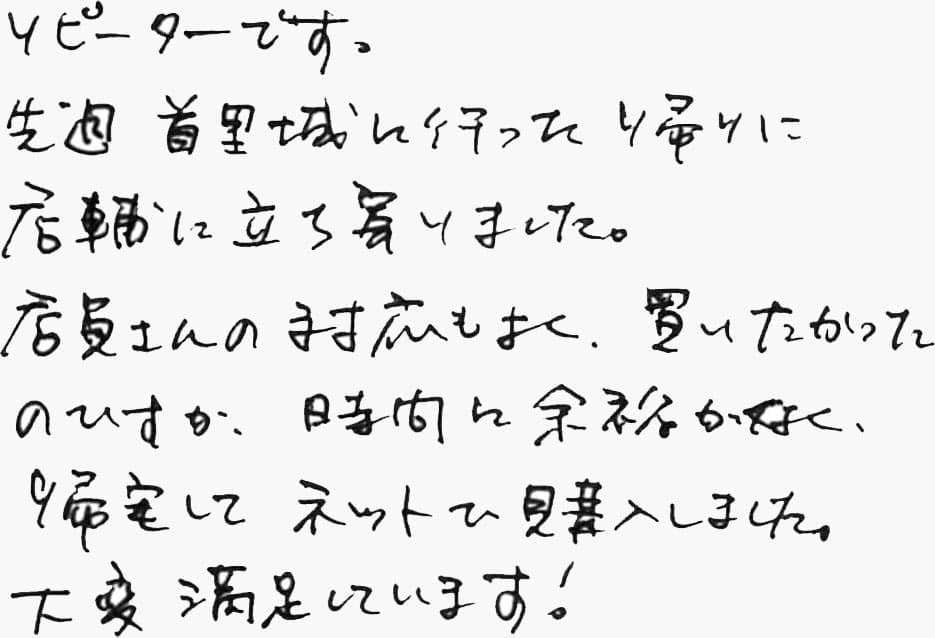 リピーターです。
先週 首里城に行った帰りに
店舗に立ち寄りました。
店員さんの対応もよく、買いたかった
のですが、時間に余裕がなく、
帰宅して ネットで購入しました。
大変満足しています!